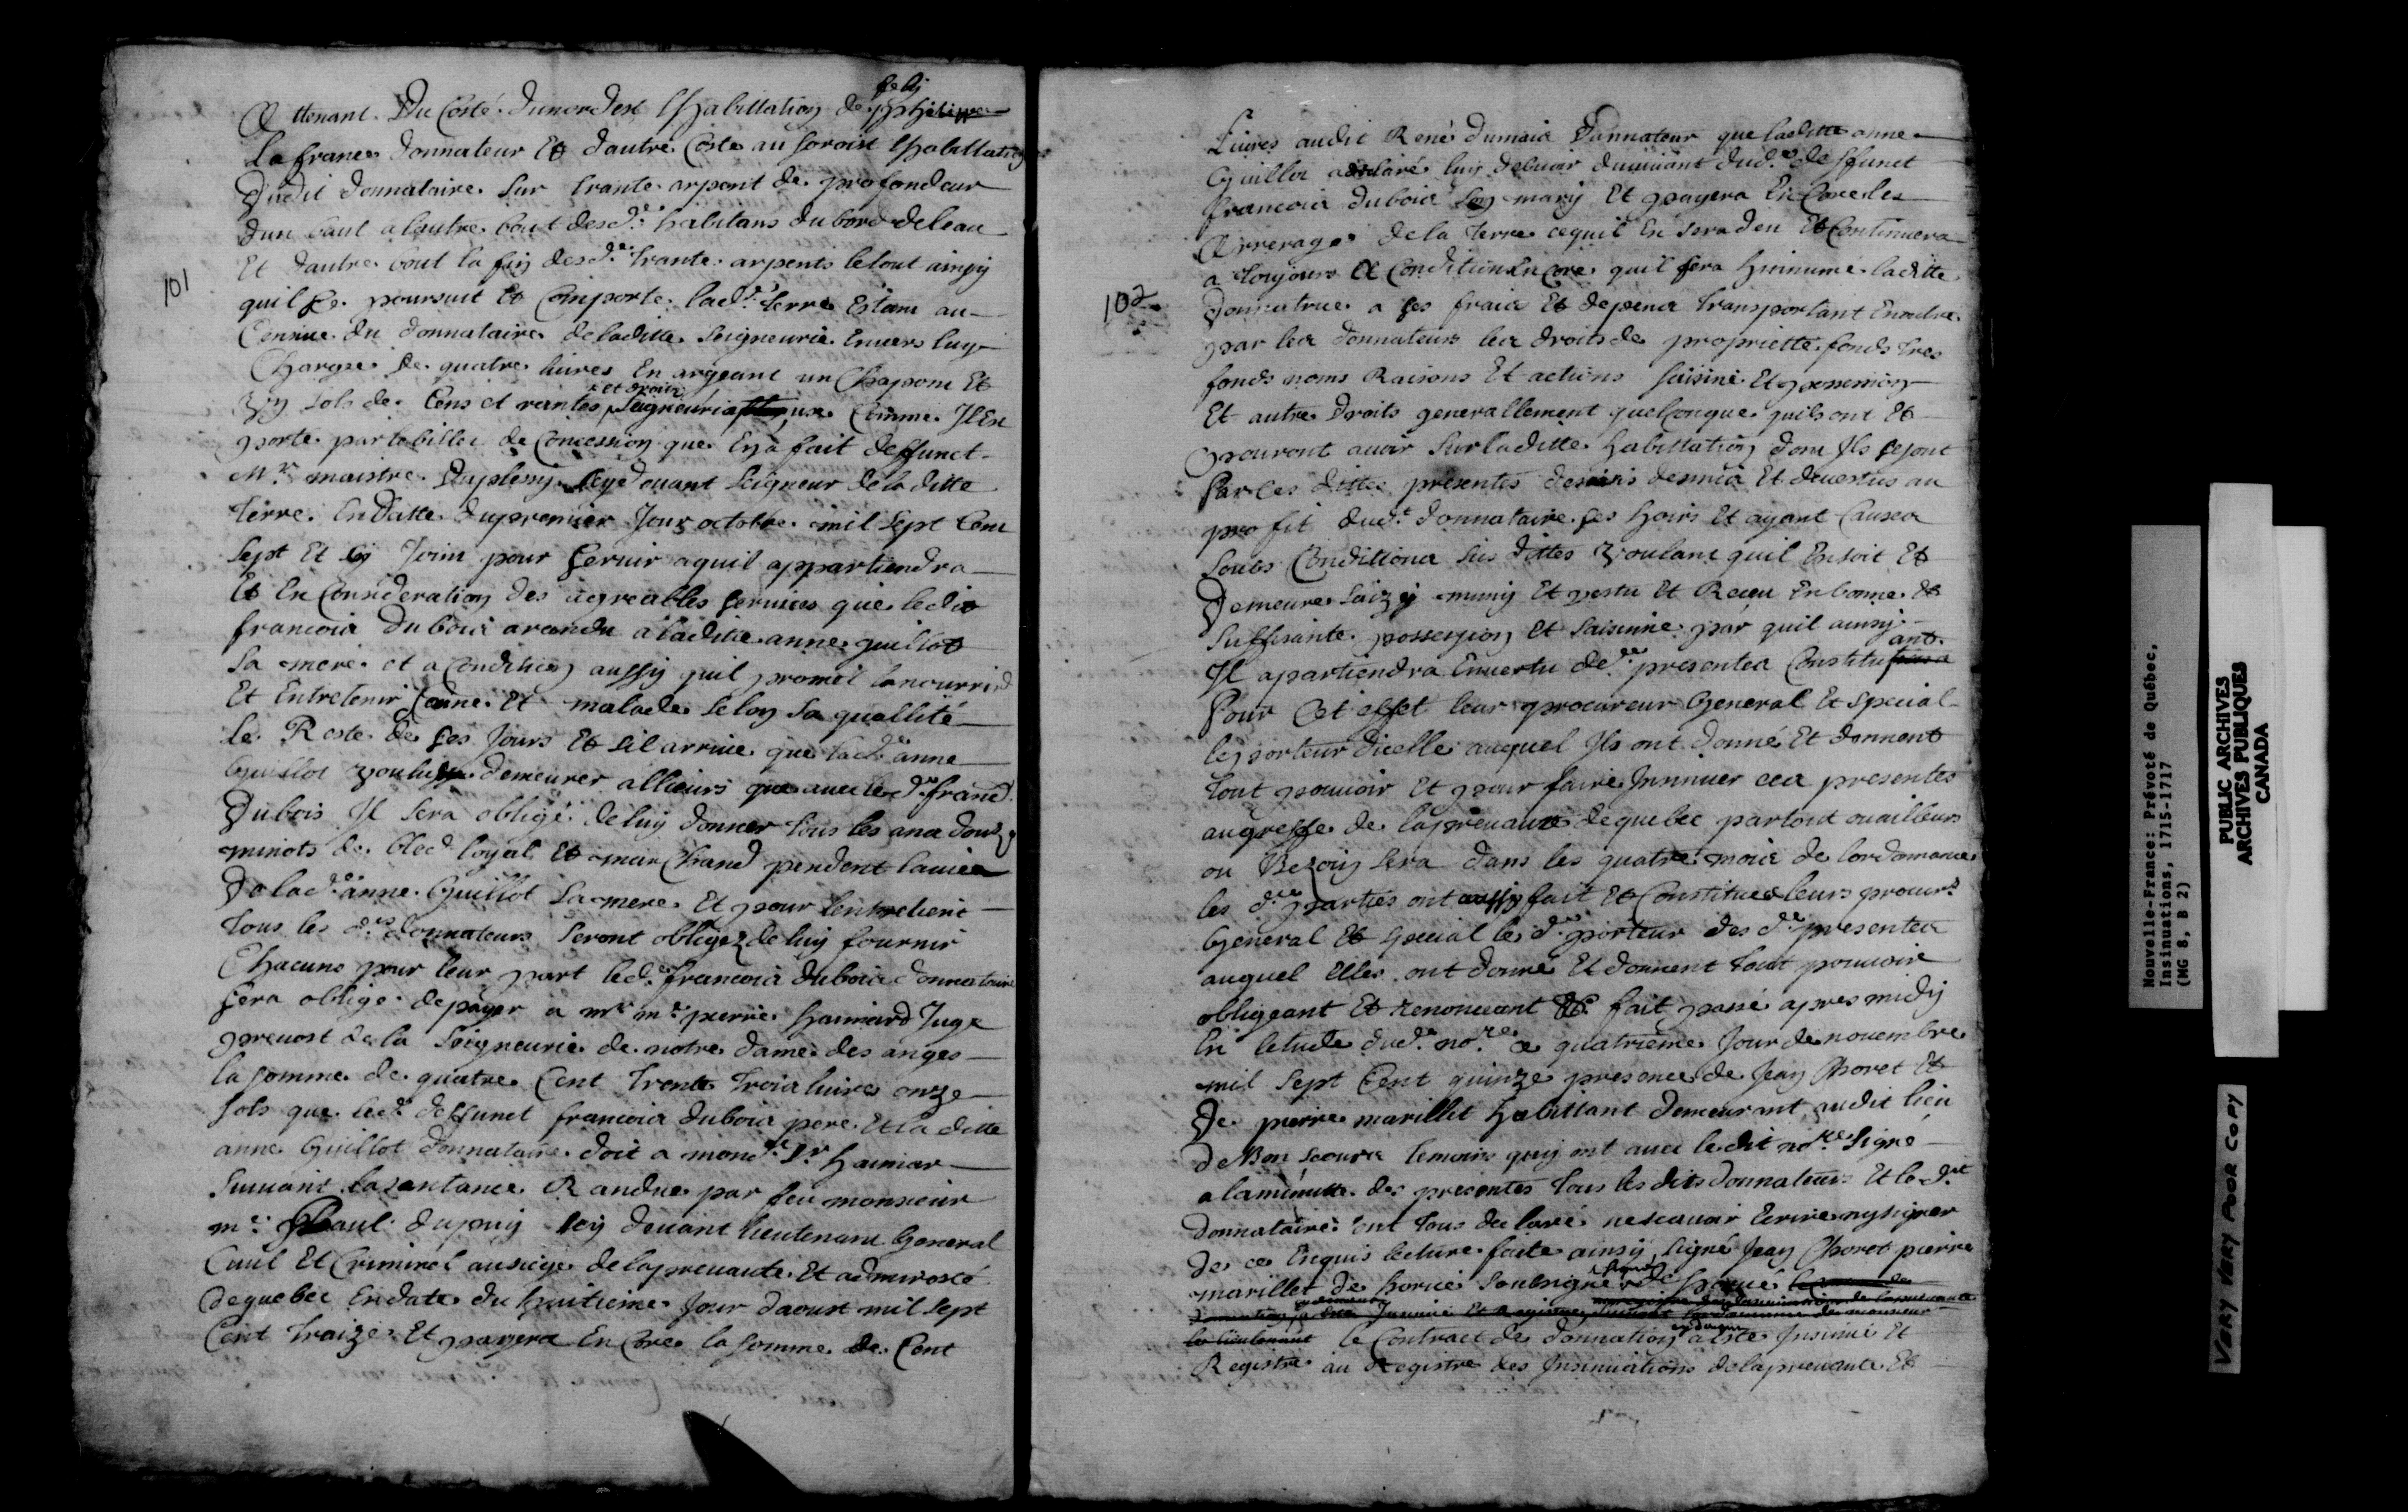 101
Attenant. Du Costé. dunord est lhabittation de joseph
La france donnateur Et dautre Coste au soroist lhabittation
Dudit donnataire. Sur trante arpent de profondeur
dun baut a lautre bout desd. habitans du bord deleau
Et dautre bout la fin desd. trante arpents letout ainsy
quil se poursuit Et Comporte. lad. terre Estant au
Censive du donnataire de laditte Seigneurie Envers luy
Chargee de quatre livres En argeant un Chapons Et
sols de. Cens et rentes et droits Seigneuriaux Comme Il Est
porté par le billet de Concession que En a fait deffunct
Mr. maistre Duplessy cy devant Seigneur de la ditte
terre. En datte du premier Jour octobre mil sept Cent
sept Et cy Join pour servir a quil appartiendra
Et En Consideration des agreables services que ledit
francois dubois a randu a laditte anne guillot
Sa mere. et a Condition aussy quil promet la nourrir
Et Entretenir Saine. Et malade selon sa quallité
le Reste de ses Jours Et sil arrive que lad. anne
Guillot voulusse demeurer allieurs que avec le d. francs
Dubois Il sera obligé de luy donner tous les ans douze
minots de bled loyal Et marChand pendent la vie
De lad. anne. Guillot Sa mere. Et pour lentretient
tous les d. donnateurs seront obligez de luy fournir
Chacuns pour leur part led. francois dubois donnataire
sera obligé de payer a mr. me. pierre haimard Juge
prevost de la Seigneurie de notre dame des anges
la somme de quatre Cent trente trois livres onze
sols que led. deffunct francois dubois pere Et la ditte
anne Guillot donnataire doit a mond. Sr. haimar
Suivant la santance Randue par feu monsieur
me. Paul dupuy cy devant lieutenant General
Civil Et Criminel au siege de la prevauté. Et admirosté
de quebec En date du huitieme Jour daoust mil sept
Cent traize Et payera En Core la somme de Cent
102
Livres audit René dumais Donnateur que laditte anne
Guillot a declaré luy debvoir du vivant dud. deffunct
francois dubois son mary Et payera En Core les
Arrerages de la terre ce quil En sera deu Et Continuera
a toujours Et Condition En Core quil fera hinnumé laditte
Donnatrice a ses frais Et depens transportant En outre
par les donnateurs les droits de propriette fonds tres
fonds noms Raisons Et actions saisine Et possession
Et autre Droits generallement quelConque quils ont Et
pouront avoir Sur laditte habittation dont Ils se sont
Par ces dittes presentes desaisis demis Et devestus au
profit dud. donnataire ses hoirs Et ayant Causes
Soubs Conditions sus dittes voulant quil En soit Et
Demeure saizy muny Et vestu Et Receu En bonne Et
Suffisante possession Et saisinne par quil ainsy
Il apartiendra En vertu de d. presentes Constituant
Pour Cet effet leur procureur General Et special
le porteur dicelle auquel Ils ont donné Et donnent
tout pouvoir Et pour faire Jnsinuer ces presentes
au greffe de la prevauté de quebec partout ou ailleurs
ou Bezoin sera dans les quatre mois de lordonnance
les d. parties ont aussy fait Et Constitués leurs procurs
General Et special le d. porteur des d. presentes
auquel Elles ont donné Et donnent tout pouvoir
obligeant Et renoncant &c. fait passé apres midy
En letude dud. nore. ce quatrieme Jour de novembre
mil Sept Cent quinze presence de Jean Choret Et
De pierre marillet habittant demeurant audit lieu
de Bon secours temoins quy ont avec ledit nore. signé
a la minutte des presentes tous les dits donnateurs Et le dit
donnataire ont tous declaré ne scavoir Ecrire ny signer
de ce Enquis lecture faite ainsy signé Jean Choret pierre
marillet de horné soubsigné
le lieutenant le Contract de donnation a Este Jnsinué Et
Registré au Registre des Jnsinuations de la prevauté Et
Nouvelle-France: Prévoté de Québec,
Insinuations, 1715-1717
(MG 8, B 2)
PUBLIC ARCHIVES
ARCHIVES PUBLIQUES
CANADA
VERY VERY POOR COPY